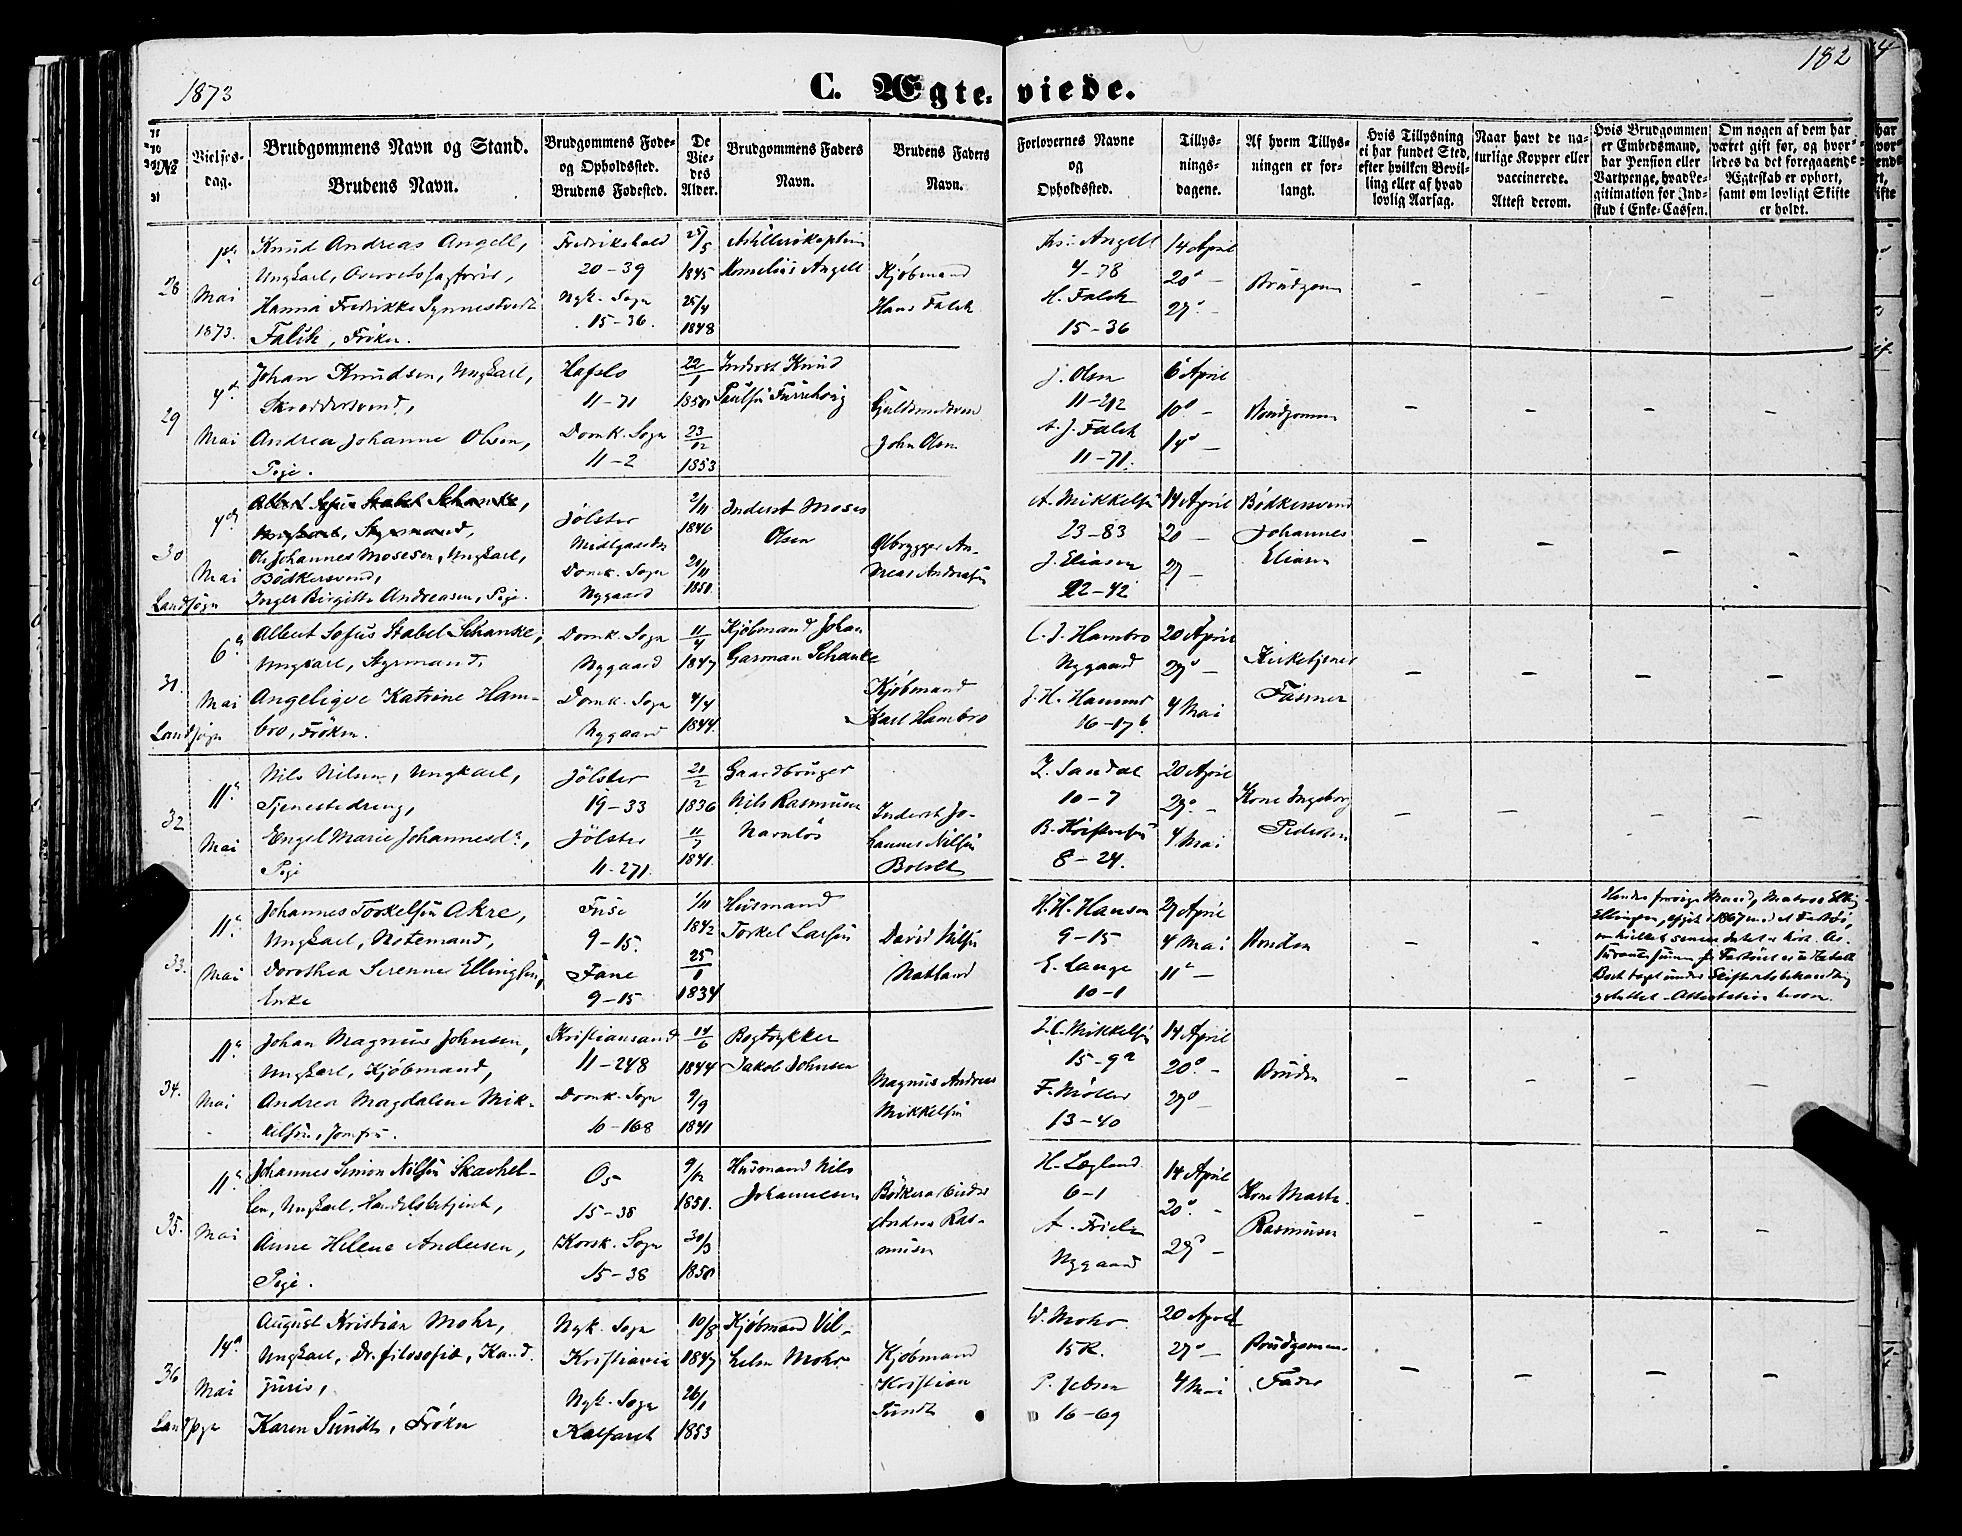 1873
C. Ægteviede.
182
No
Vielsesdag.
Brudgommens Navn og Stand.
Brudens Navn.
Brudgommens Føde- og Opholdssted.
Brudens Fødested.
De Viedes Alder.
Brudgommens Faders Navn.
Brudens Faders Navn.
Forlovernes Navne og Opholdssted.
Tillysningsdagene.
Af hvem Tillysningen er forlangt.
Hvis Tillysning ei har fundet Sted, efter hvilken Bevilling eller af hvad lovlig Aarsag.
Naar havt de naturlige Kopper eller vaccinerede. Attest derom.
Hvis Brudgommen er Embedsmand, har Pension eller Vartpenge, hvad Legitimation for Indskud i Enke-Cassen.
Om nogen af dem har været gift før, og hvorledes da det foregaaende Ægteskab er ophørt, samt om lovligt Skifte er holdt.
28
Mai
1873.
Knud Andreas Angell,
Ungkarl, Overretssagfører,
Hanna Fredrikke Synnestvedt
Falck, Frøken.
Fredrikshald
20-39
Nyk. Sogn
15-36.
25/5
1845
25/4
1848
Kornelius Angell
Kjøbmand
Hans Falck
Angell
4-78
H. Falck
15-36
14 April
20 -
27 -
Brudgom
29
Mai
Johan Knudsen, Ungkarl,
Skreddersvend,
Andrea Johanne Olsen,
Pige.
Hafslo
11-71
Domk. Sogn
11-2
22/1
1850
23/12
1853
Inderst Knud
Guldsmedsvend
John Olsen
J. Olsen
11-212
A. J. Falck
11-71.
6 April
10 -
14 -
Brudgommen
30
Mai
Landsogn
Albert Sofus Stabel Schanke,
Ungkarl, Styrmand,
Ole Johannes Mosesen, Ungkarl,
Bødkersvend,
Inger Birgitte Andreasen, Pige.
Jølster
Midtgaarden
Domk. Sogn
Nygaard
2/11
1846
1850
Inderst Moses
Olsen
Ølbrygger An-
dreas Andreasen
A. Mikkelsen
23-83
J. Eliasen
22-42
14 April
20 -
27 -
Bødkersvend
Johannes
Eliasen
31.
Mai
Landsogn
Albert Sofus Stabel Schanke,
Ungkarl, Styrmand,
Angelique Katrine Ham-
bro, Frøken.
Domk. Sogn
Nygaard
Domk. Sogn
Nygaard
11/4
1847
4/4
1844.
Kjøbmand Johan
Garman Schanke
Kjøbmand
Karl Hambro
C. J. Hambro
Nygaard
16-17b
20 April
27 -
4 Mai
Kirketjener
Fasmer
32
Mai
Nils Nilsen, Ungkarl,
Tjenestedreng,
Engel Marie Johannesd.,
Pige
Jølster
19-33
Jølster
11-271.
1836
11/7
1841.
Gaardbruger
Nils Rasmusen
Inderst Jo-
hannes Nilsen
Z. Sandal
10-7
8-24.
20 April
27 -
4 Mai
Kone Ingeborg
Pedersen
33.
Mai
Johannes Torkelsen Akre,
Ungkarl, Notemand,
Dorothea Serenne Ellingsen,
Enke
Fuse
9-15.
Fane
9-15
1/11
1842
25/1
1834
Husmand
Torkel Larsen
David Nilsen
Natland
H. H. Hansen
9-15
E. Lange
10-1
27 April
4 Mai
11 -
Bruden
34.
Mai
Johan Magnus Johnsen,
Ungkarl, Kjøbmand,
Andrea Magdalene Mik-
kelsen, Jomfru.
Kristiansand
11-248
Domk. Sogn
10-168
14/6
1844
9/9
1841
Bogtrykker
Jakob Johnsen
Magnus Andreas
Mikkelsen
J. C. Mikkelsen
15-9a
F. Møller
13-40
14 April
20 -
27 -
Bruden
35.
Mai
Johannes Simon Nilsen Skavhel-
len, Ungkarl, Handelsbetjent,
Anne Helene Andersen,
Pige.
Os
15-38
Korsk. Sogn
15-38
9/12
1850.
30/3
1850
Husmand Nils
Johannesen
Bødkerarbeider
Anders Ras-
musen
H. Lægland
6-1
A. Friele
Nygaard
14 April
20 -
27 -
Kone Marte
Rasmusen
36
14
Mai
Landsogn
August Kristian Mohr,
Ungkarl, Dr. filosofiæ, Kand.
juris,
Karen Sundt, Frøken
Nyk. Sogn
Kristiania
Nyk. Sogn
Kalfaret
10/8
1847
26/1
1853
Kjøbmand Vil-
helm Mohr
Kjøbmand
Kristian
Sundt
W. Mohr
15 R.
P. Jebsen
16-69
20 April
27 -
4 Mai
Brudgommens
Fader